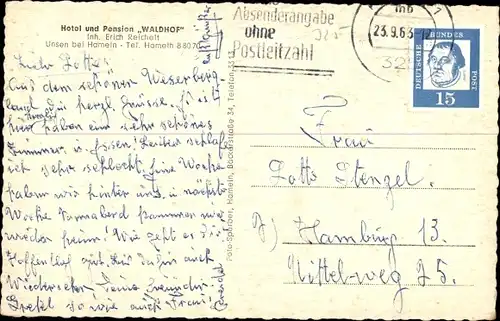 Hotel und Pension „WALDHOF"
Inh. Erich Reichelt
Unsen bei Hameln - Tel. Hameln 88070
Absenderangabe
ohne
Postleitzahl
23.9.63
DEUTSCHE BUNDESPOST
15
Foto-Sperber, Hameln, Bäckerstraße 34, Telefon 33
Aus dem schönen Weserberg-
land die herzl. Grüsse.
haben ein sehr schönes
Zimmer u. Essen! Leider schlafe
ich sehr schlecht. Eine Woche
haben wir hinter uns, u. nächste
Woche Sonnabend kommen wir
wieder heim! Wie geht es dir
Hoffentlich gut. Auf
Wiedersehen
Gretel so wie auch
Frau
Lotte Stengel.
Hamburg 13.
Mittelweg 25.